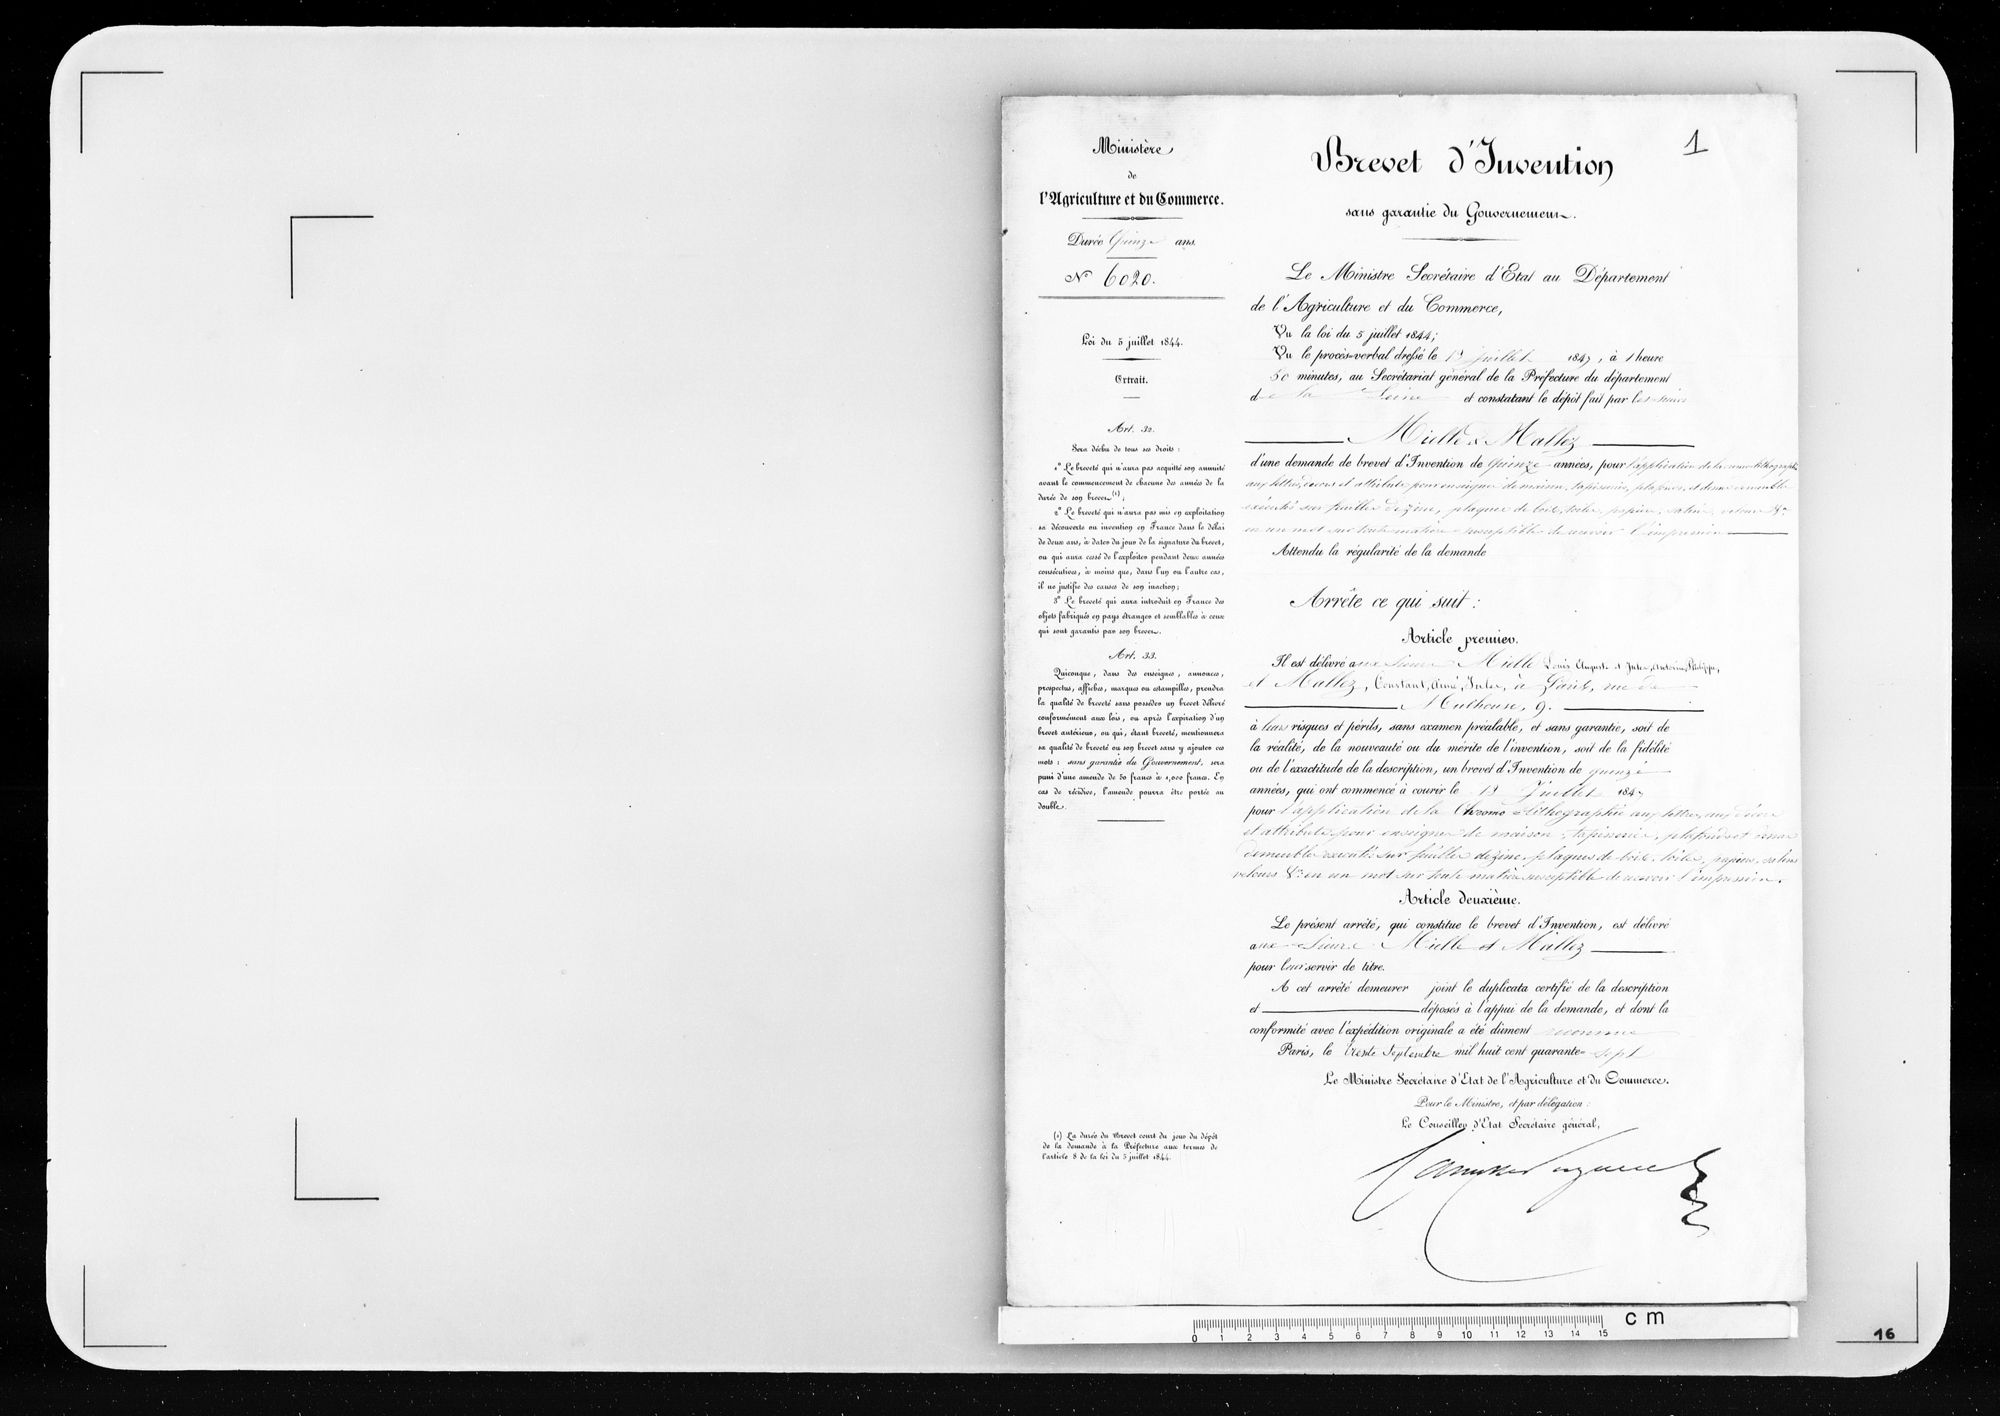 1
Ministère
de
l'Agriculture et du Commerce.
Durée Quinze ans.
N° 6020.
Loi du 5 juillet 1844.
Extrait.
Art. 32.
Sera déchu de tous ses droits :
1° Le breveté qui n'aura pas acquitté son annuité
avant le commencement de chacune des années de la
durée de son brevet (1);
2° Le breveté qui n'aura pas mis en exploitation
sa découverte ou invention en France dans le délai
de deux ans, à dater du jour de la signature du brevet,
ou qui aura cessé de l'exploiter pendant deux années
consécutives, à moins que, dans l'un ou l'autre cas,
il ne justifie des causes de son inaction;
3° Le breveté qui aura introduit en France des
objets fabriqués en pays étranger et semblables à ceux
qui sont garantis par son brevet.
Art. 33.
Quiconque, dans des enseignes, annonces,
prospectus, affiches, marques ou estampilles, prendra
la qualité de breveté sans posséder un brevet délivré
conformément aux lois, ou après l'expiration d'un
brevet antérieur, ou qui, étant breveté, mentionnera
sa qualité de breveté ou son brevet sans y ajouter ces
mots : sans garantie du Gouvernement, sera
puni d'une amende de 50 francs à 1,000 francs. En
cas de récidive, l'amende pourra être portée au
double.
(1) La durée du Brevet court du jour du dépôt
de la demande à la Préfecture aux termes de
l'article 8 de la loi du 5 juillet 1844.
Brevet d'Invention
sans garantie du Gouvernement.
Le Ministre Secrétaire d'Etat au Département
de l'Agriculture et du Commerce,
Vu la loi du 5 juillet 1844;
Vu le procès-verbal dressé le juillet 1847, à 1 heure
50 minutes, au Secrétariat général de la Préfecture du département
de la Seine et constatant le dépôt fait par les sieurs
Mielle & Mallez
d'une demande de brevet d'Invention de quinze années, pour l'application de la chromo lithographie
aux lettres, décors et attributs pour enseignes de maison, tapisserie, plafonds, et dessus de meuble
exécutés sur feuilles de zinc, plaques de bois, toiles, papiers, satins, velours &a
en un mot sur toute matière susceptible de recevoir l'impression
Attendu la régularité de la demande
Arrête ce qui suit :
Article premier.
Il est délivré aux sieurs Mielle Louis Auguste et Jules, Antoine, Philippe,
et Mallez, Constant, Aimé, Jules, à Paris, rue de
Mulhouse, 9.
à leurs risques et périls, sans examen préalable, et sans garantie, soit de
la réalité, de la nouveauté ou du mérite de l'invention, soit de la fidélité
ou de l'exactitude de la description, un brevet d'Invention de quinze
années, qui ont commencé à courir le Juillet 1847
pour l'application de la Chromo-lithographie aux lettres, aux décors
et attributs pour enseignes de maison, tapisserie, plafonds et dessus
de meuble exécutés sur feuilles de zinc, plaques de bois, toiles, papiers, satins
velours &a en un mot sur toute matière susceptible de recevoir l'impression.
Article deuxième.
Le présent arrêté, qui constitue le brevet d'Invention, est délivré
aux Sieurs Mielle et Mallez
pour leur servir de titre.
A cet arrêté demeurer joint le duplicata certifié de la description
et déposés à l'appui de la demande, et dont la
conformité avec l'expédition originale a été dûment reconnue
Paris, le trente Septembre mil huit cent quarante-sept
Le Ministre Secrétaire d'Etat de l'Agriculture et du Commerce.
Pour le Ministre, et par délégation :
Le Conseiller d'Etat Secrétaire général,
0 1 2 3 4 5 6 7 8 9 10 11 12 13 14 15
cm
16